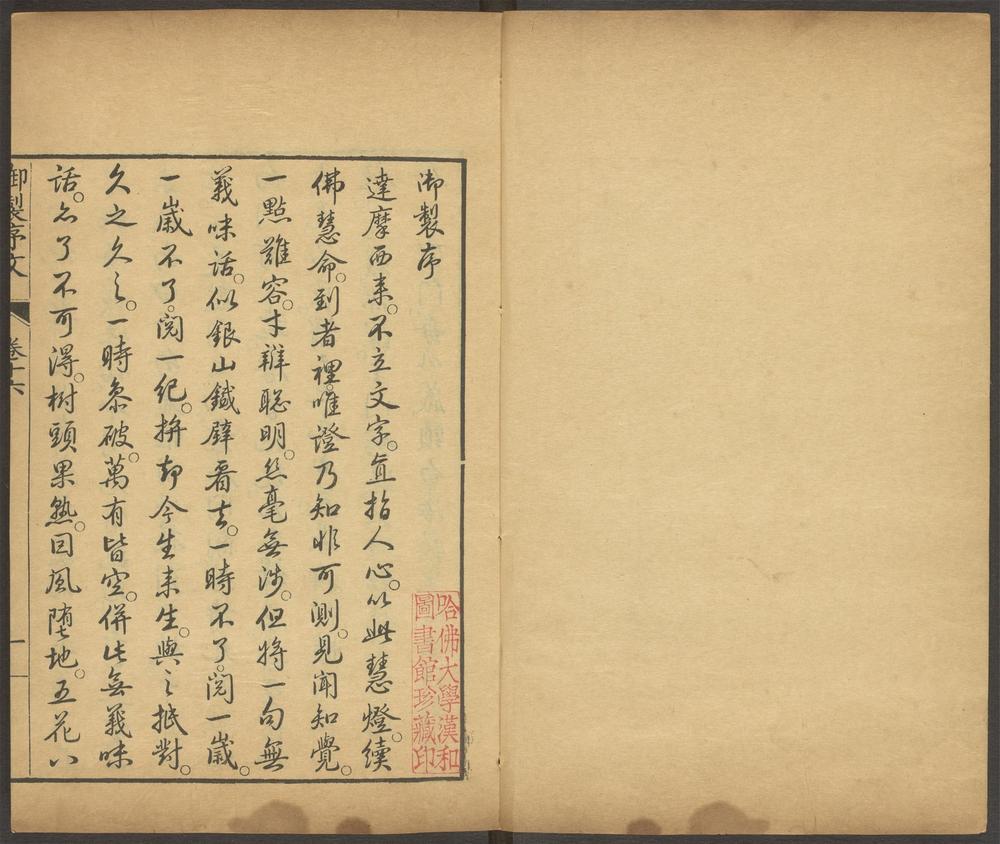 御製序
達摩西来。不立文字。直指人心。以此慧燈。續
佛慧命。到者裡。唯證乃知。非可測。見聞知覺。
一點難容。才辯聡明。絲毫無涉。但將一句無
義味話。似銀山鐵壁看去。一時不了。閱一歲。
一歲不了。閱一紀。拚却今生来生。與之抵對。
久之久之。一時叅破。萬有皆空。併此無義味
話。亦了不可得。樹頭果熟。回風堕地。五花八
御製序文 卷十六 一
哈佛大學漢和
圖書館珍藏印